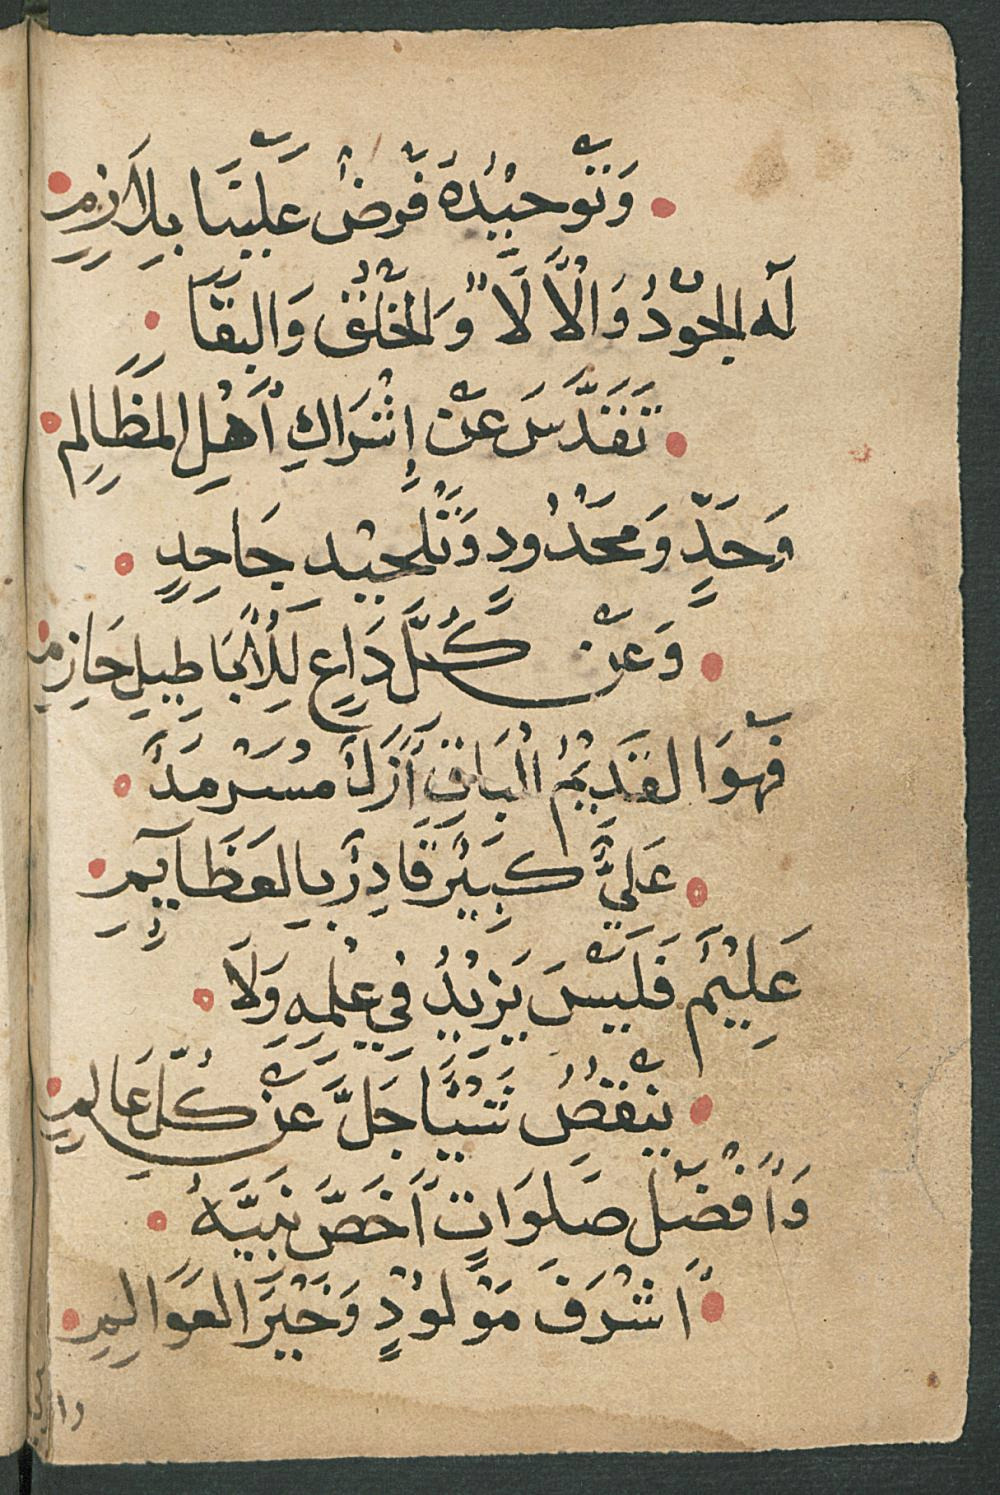 وَتَوْحِيْدُهُ فَرْضٌ عَلَيْنَا بِلَازِمِ
لَه الجُوْدُ وَالْآلَآءُ وَالخَلْقُ وَالبَقَا
تَقَدَّسَ عَنْ إِشْرَاكِ أَهْلِ المَظَالِمِ
وَحَدٍّ وَمَحْدُودٍ وَتَلْحِيْدِ جَاحِدٍ
وَعَنْ كُلِّ دَاعٍ لِلْأَبَاطِيلِ حَازِمِ
فَهْوَ القَدِيْمُ الْبَاقِ أَزَلاً مُسَرْمَداً
عَلِيٌّ كَبِيْرٌ قَادِرٌ بِالعَظَايِمِ
عَلِيْمٌ فَلَيْسَ يَزِيْدُ فِي عِلْمِهِ وَلَا
يَنْقُصُ شَيْئًا جَلَّ عَنْ كُلِّ عَالِمِ
وَأَفْضَلُ صَلَوَاتٍ أَخَصَّ نَبِيَّهُ
أَشْرَفَ مَوْلُوْدٍ وَخَيْرَ العَوَالِمِ